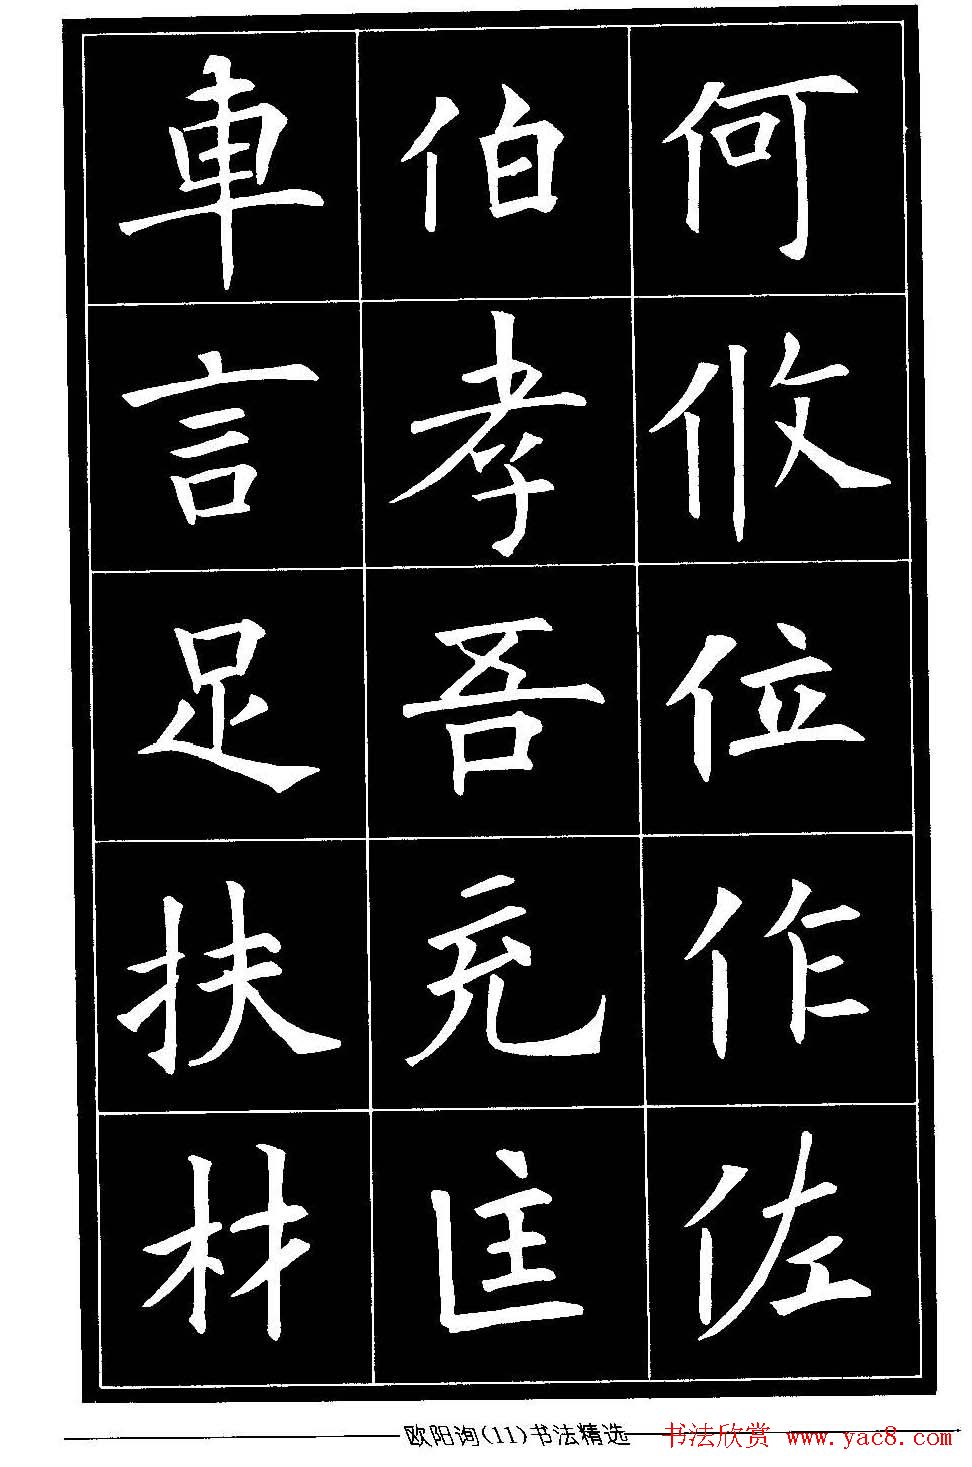 何攸位作佐
伯孝吾充匡
車言足扶材
欧阳询(11)书法精选
书法欣赏 www.yac8.com